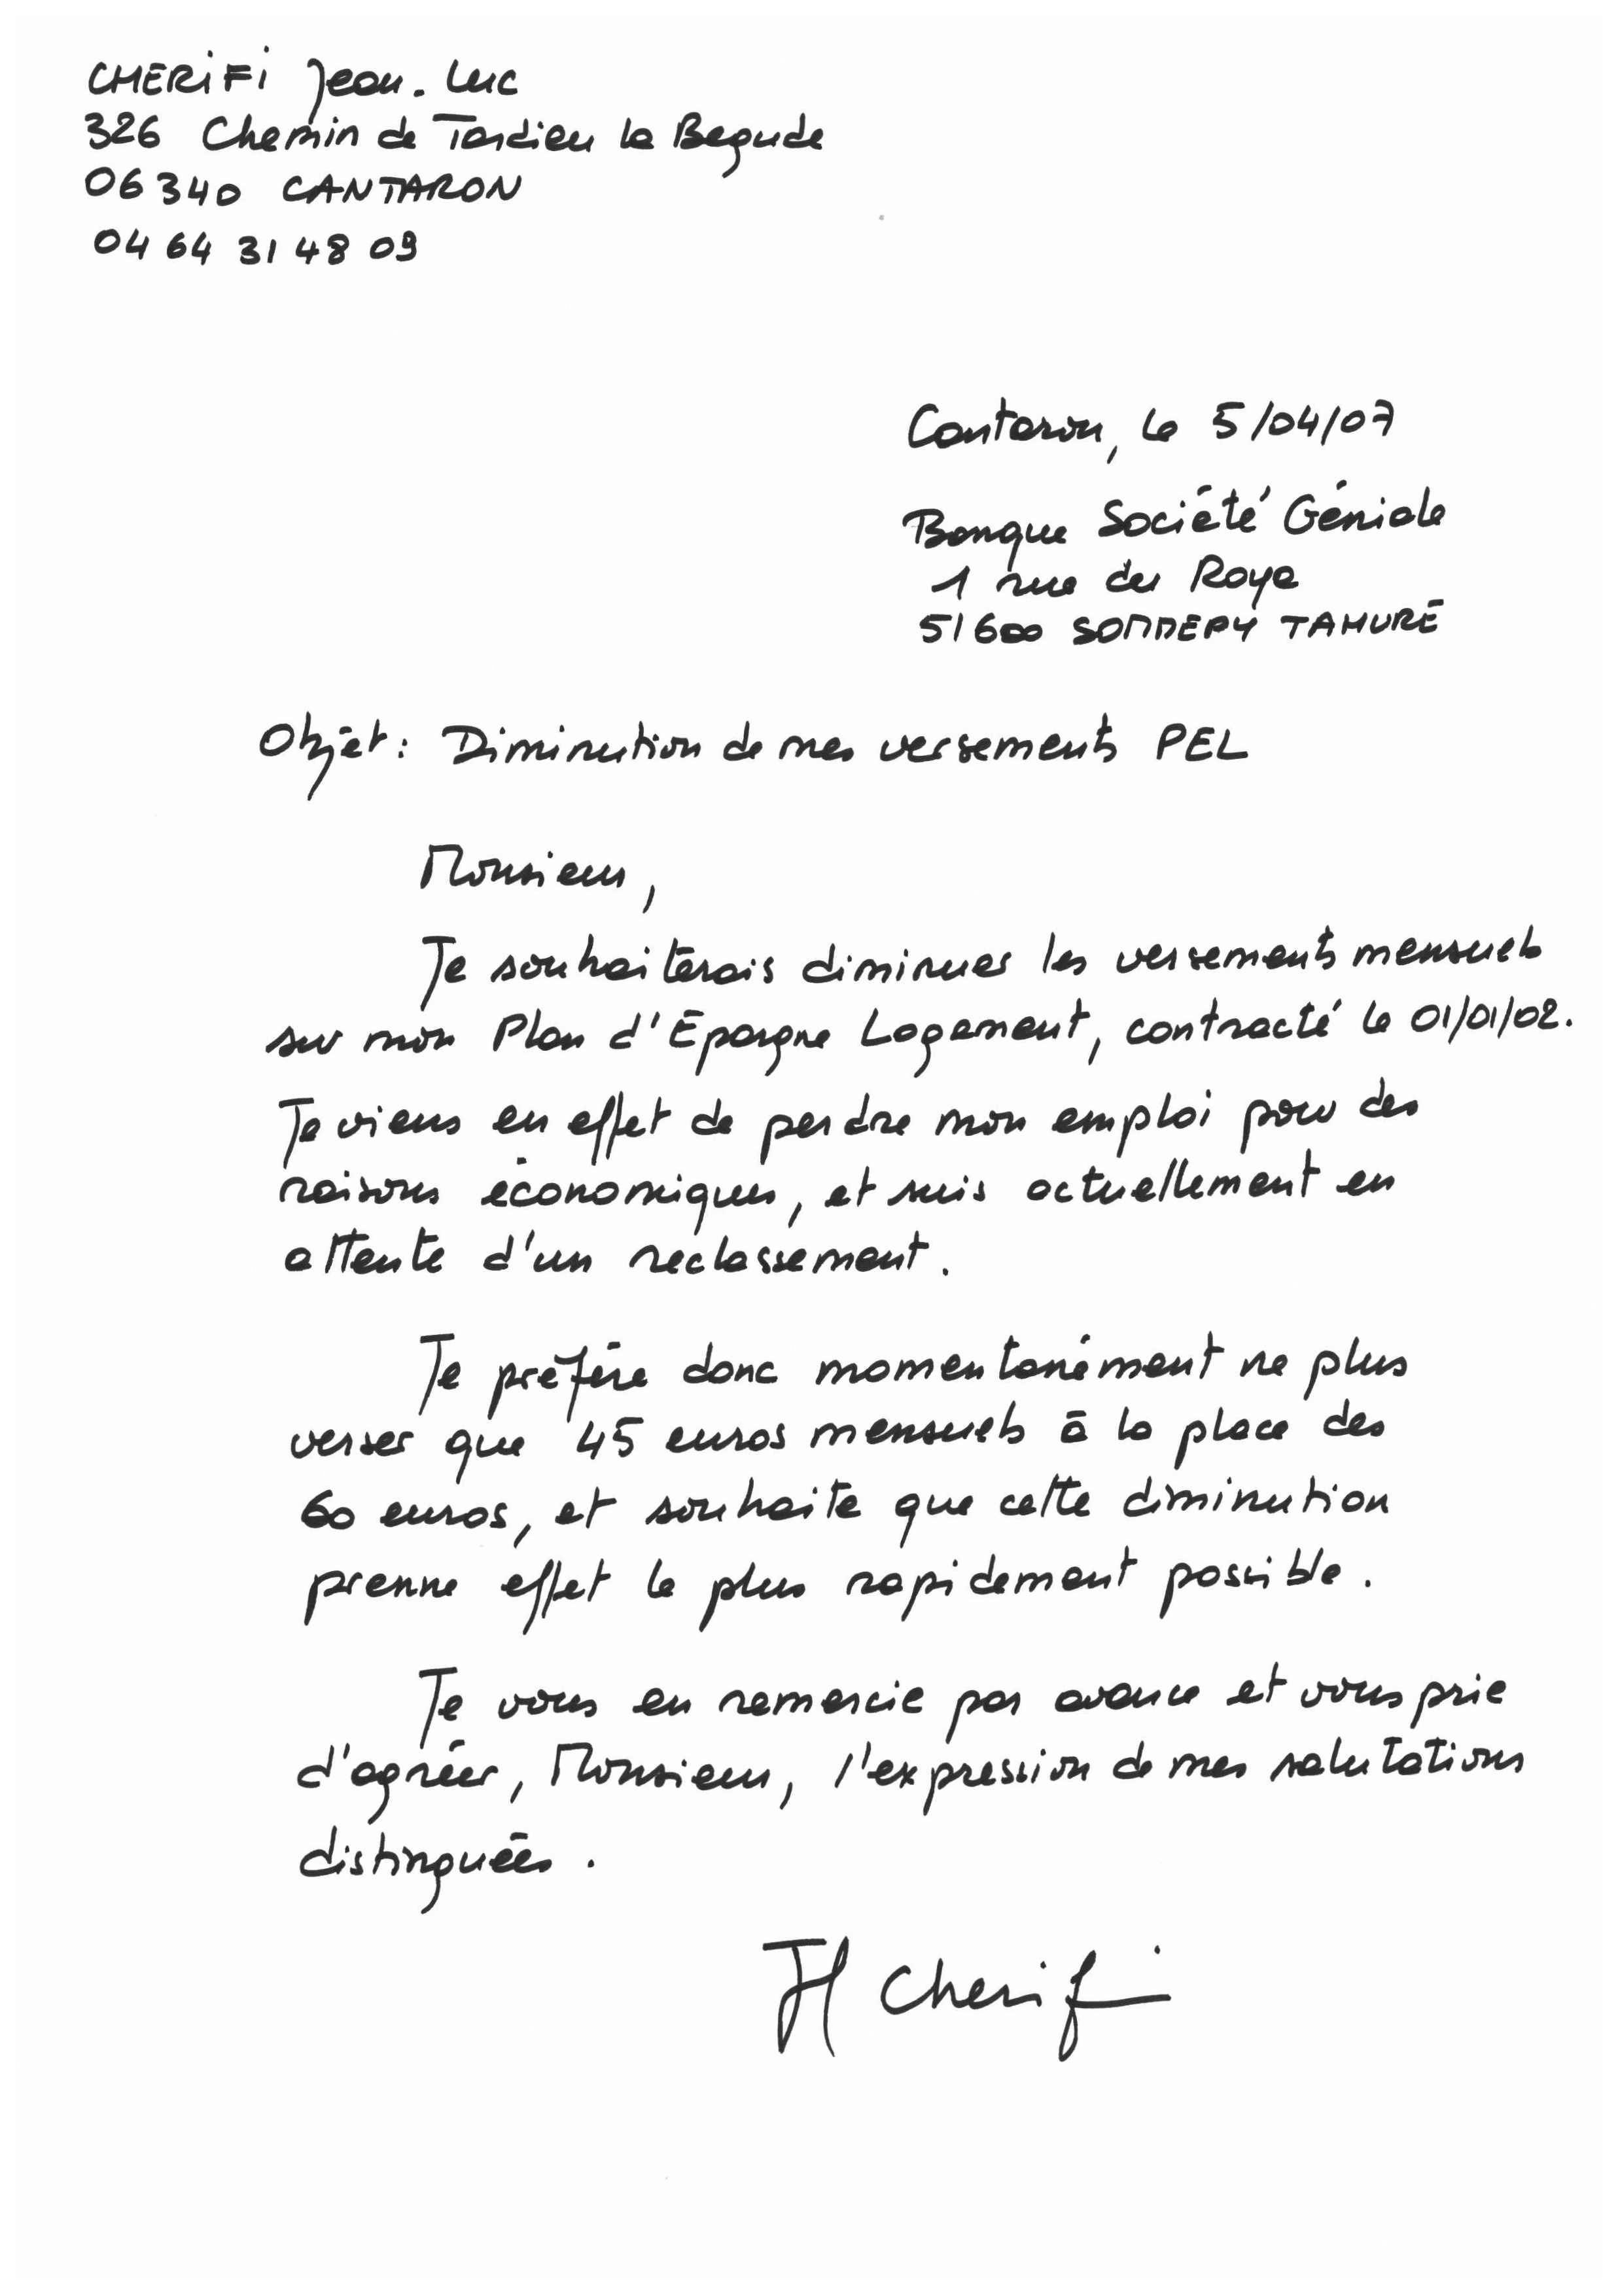 CHERIFI Jean-Luc
326 Chemin de Tardieu la Begude
06340 CANTARON
04 64 31 48 09
Cantaron, le 5/04/07
Banque Société Géniale
1 rue des Roye
51600 SOMMEPY TAHURE
Objet : Diminution de mes versements PEL
Monsieur,
Je souhaiterais diminuer les versements mensuels
sur mon Plan d'Epargne Logement, contracté le 01/01/02.
Je viens en effet de perdre mon emploi pour des
raisons économiques, et suis actuellement en
attente d'un reclassement.
Je préfère donc momentanément ne plus
verser que 45 euros mensuels à la place des
60 euros, et souhaite que cette diminution
prenne effet le plus rapidement possible.
Je vous en remercie par avance et vous prie
d'agréer, Monsieur, l'expression de mes salutations
distinguées.
JL Cherifi